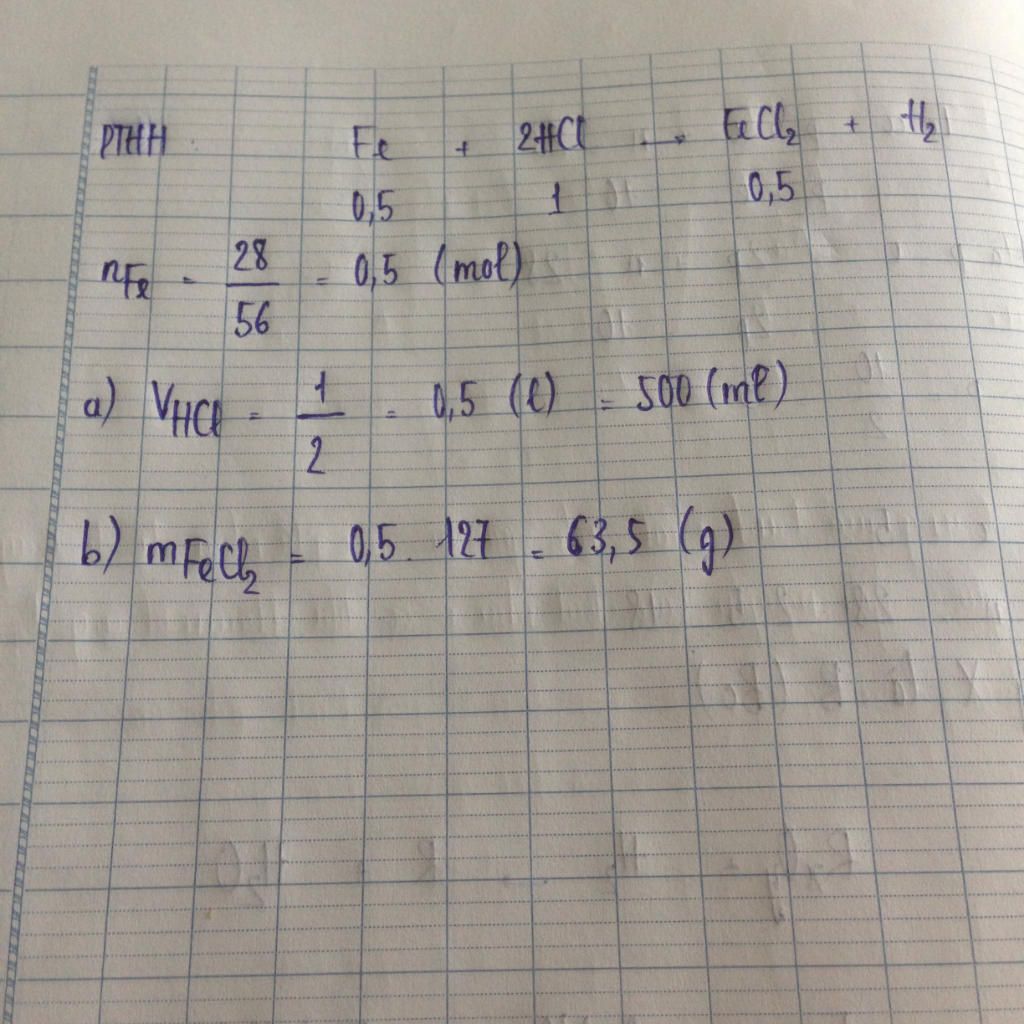 PTHH Fe + 2HCl → FeCl₂ + H₂
0,5 1 0,5
nFe = 28/56 = 0,5 (mol)
a) VHCl = 1/2 = 0,5 (l) = 500 (ml)
b) mFeCl₂ = 0,5 . 127 = 63,5 (g)